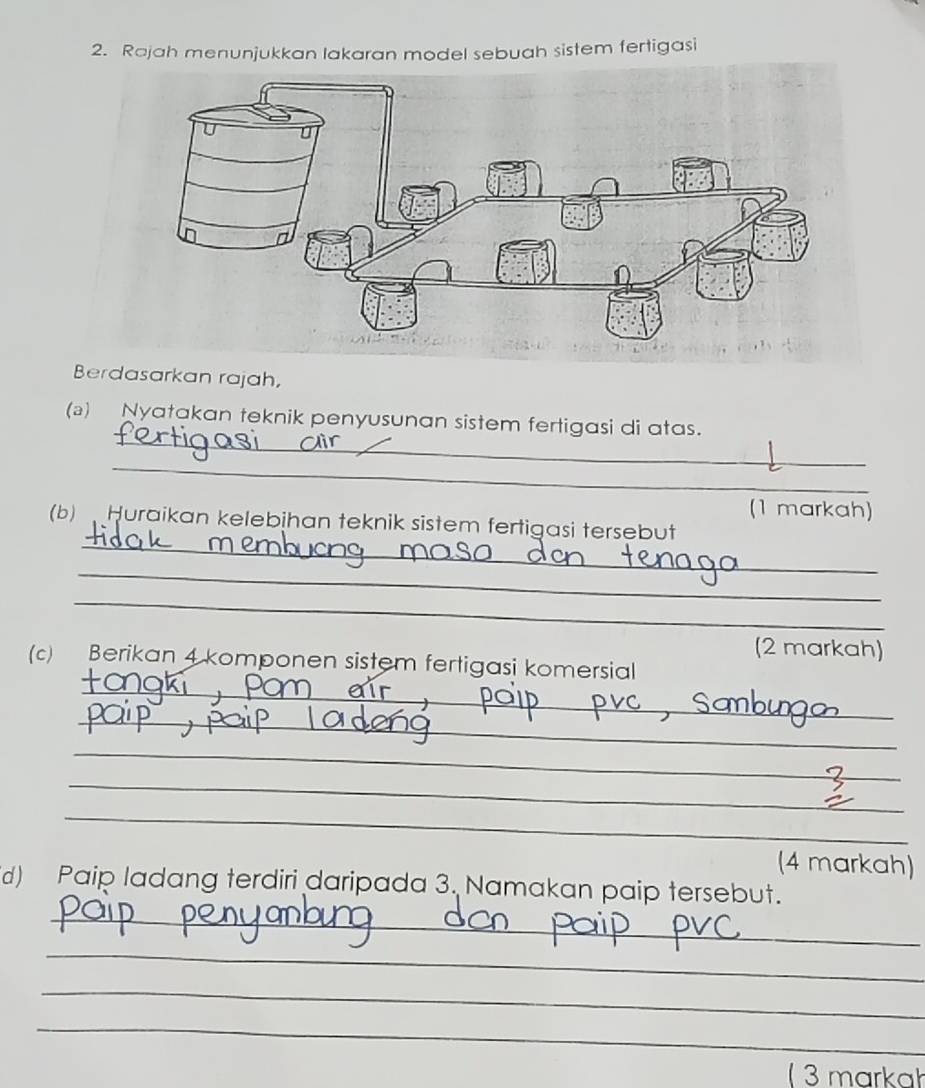 2. Rajah menunjukkan lakaran model sebuah sistem fertigasi
Berdasarkan rajah,
(a) Nyatakan teknik penyusunan sistem fertigasi di atas.
fertigasi air
1
(1 markah)
(b) Huraikan kelebihan teknik sistem fertigasi tersebut
tidak membuang masa dan tenaga
(2 markah)
(c) Berikan 4 komponen sistem fertigasi komersial
tangki, pam air, paip pvc, sambungan
paip, paip ladang
3
(4 markah)
d) Paip ladang terdiri daripada 3. Namakan paip tersebut.
paip penyambung dan paip pvc
( 3 markah